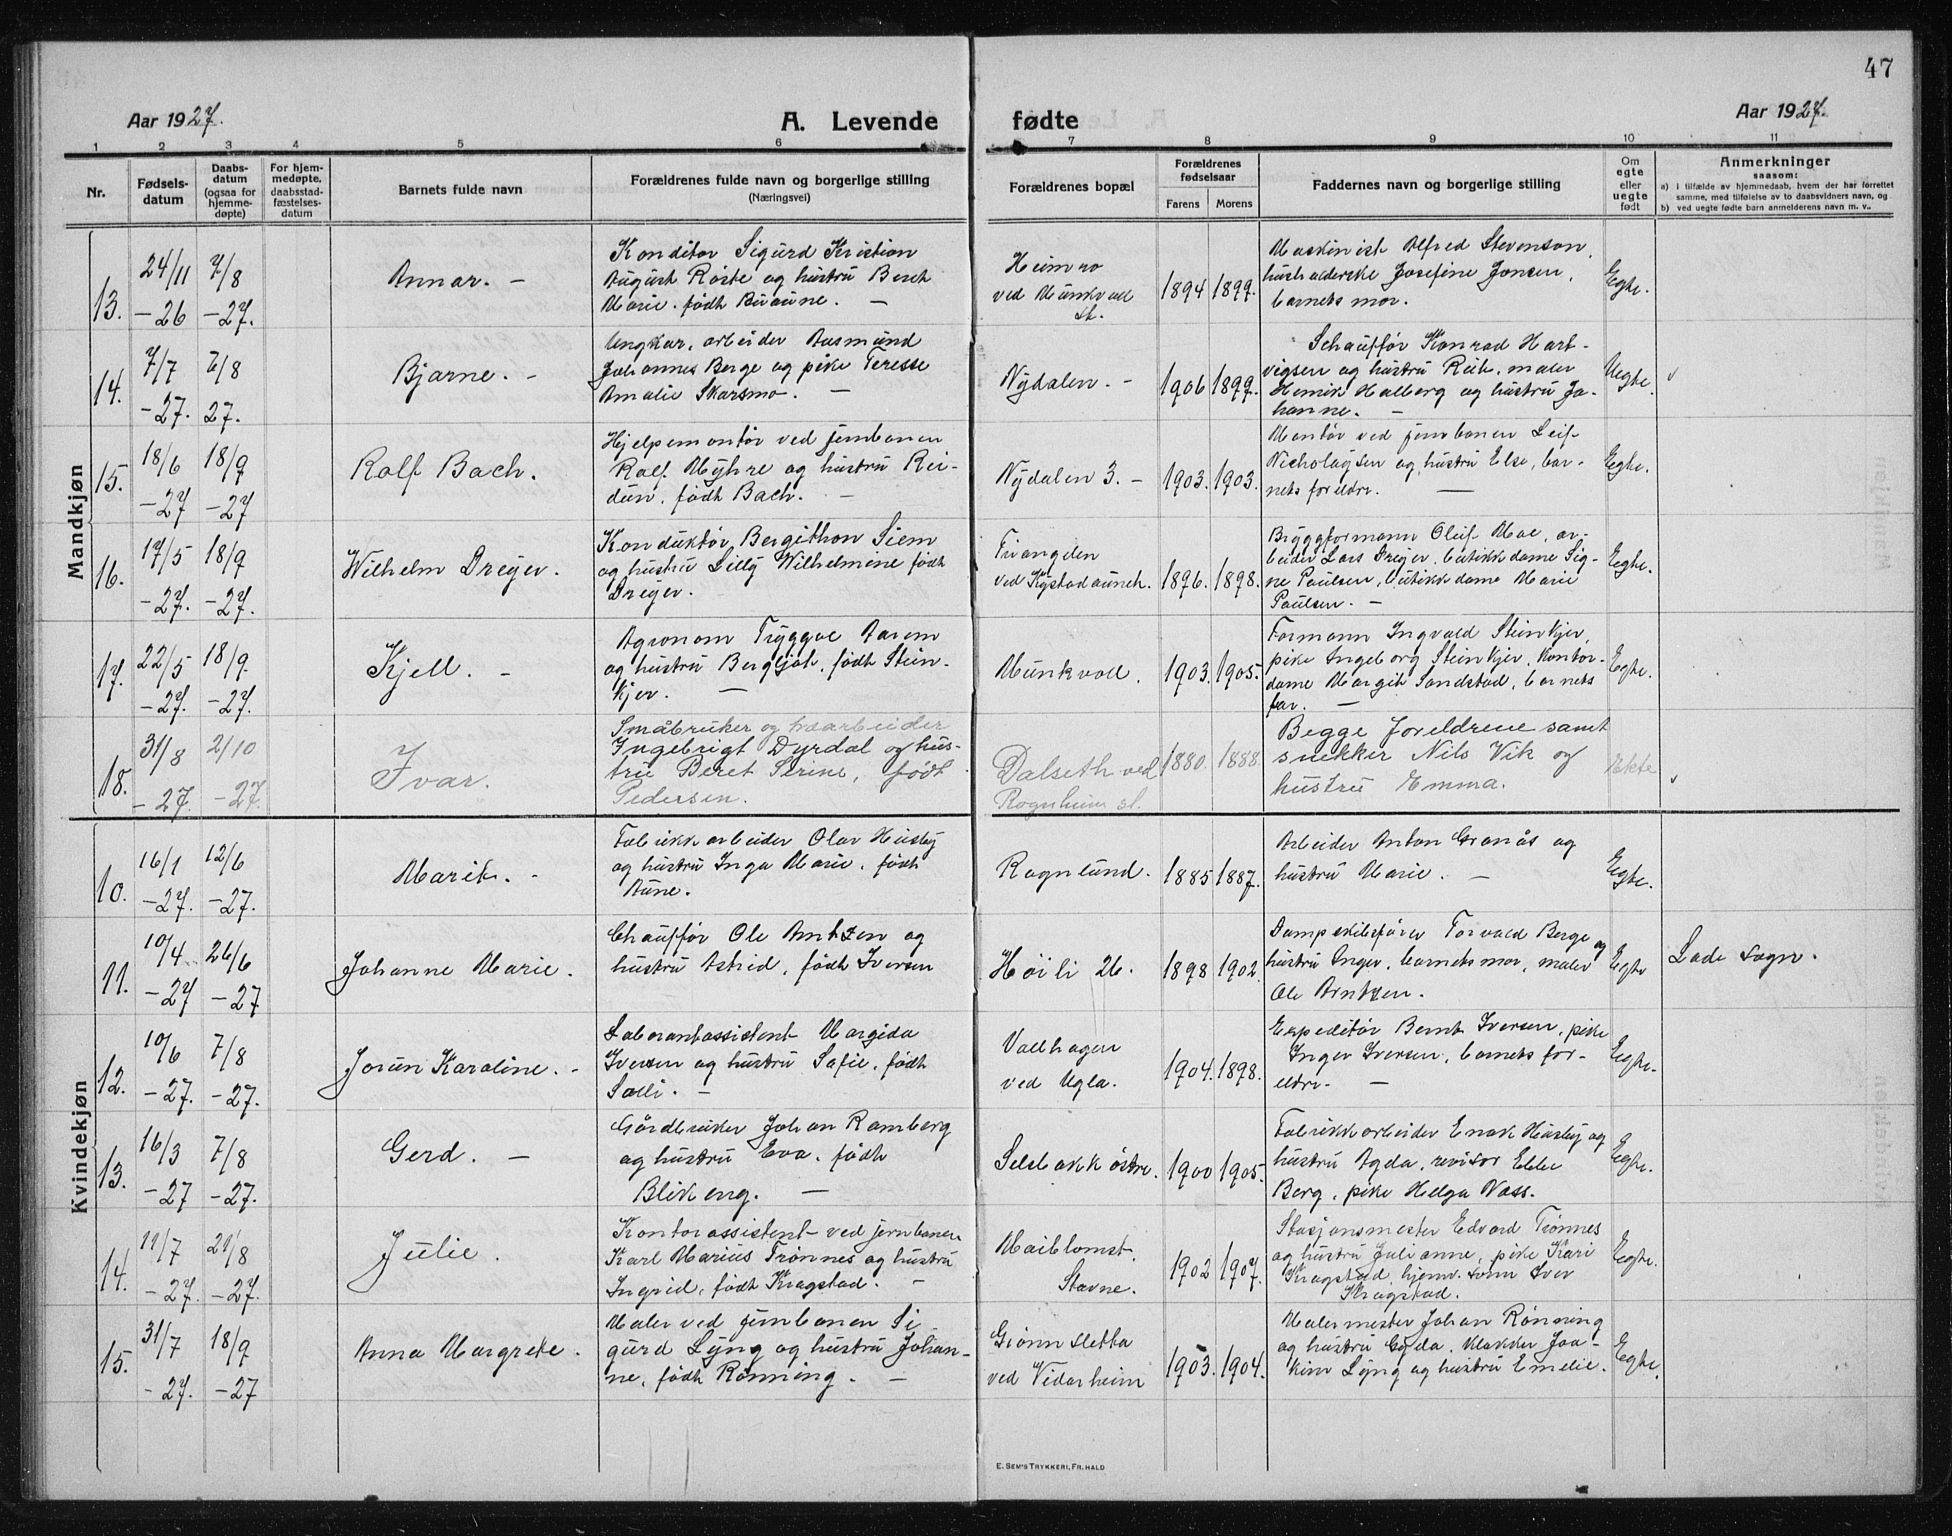 47
Aar 1927.
A. Levende
fødte
Aar 1927.
1 2 3 4 5 6 7 8 9 10 11
Nr.
Fødsels-
datum
Daabs-
datum
(ogsaa for
hjemme-
døpte)
For hjem-
medøpte,
daabsstad-
fæstelses-
datum
Barnets fulde navn
Forældrenes fulde navn og borgerlige stilling
(Næringsvei)
Forældrenes bopæl
Forældrenes
fødselsaar
Farens Morens
Faddernes navn og borgerlige stilling
Om
egte
eller
uegte
født
Anmerkninger
saasom:
a) i tilfælde av hjemmedaab, hvem der har forrettet
samme, med tilføielse av to daabsvidners navn, og
b) ved uegte fødte barn anmelderens navn m. v.
Mandkjøn
13.
24/11
-26
7/8
-27.
Annar. -
Konditor Sigurd Kristian
August Röste og hustru Berit
Marie. født Buaune. -
Heimro
ved Munkvoll
st.
1894 1899.
Maskinist Alfred Stevenson,
husholderske Josefine Jonsen,
barnets mor.
Egte.
14.
7/7
-27.
7/8
27.
Bjarne. -
Ungkar, arbeider Aasmund
Johannes Berge og pike Terese
Amalie Skarsmo. -
Nydalen. -
1906 1899.
Schauffør Konrad Hart-
vigsen og hustru Rut, maler
Henrik Halberg og hustru Jo-
hanne. -
Uegte.
15.
18/6
-27
18/9
-27
Rolf Bach.
Hjelpemontør ved jernbanen
Rolf Myhre og hustru Rei-
dun, født Bach. -
Nydalen 3. -
1903. 1903.
Montør ved jernbanen Leif
Nicholaysen og hustru Else, bar-
nets foreldre. -
Egte.
16.
17/5
-27.
18/9
-27.
Wilhelm Dreyer.
Konduktør Bergithon Siem
og hustru Lilly Wilhelmine født
Dreyer.
Triangden
ved Kystadaunet.
1896. 1898.
Bryggformann Oluf Moe, ar-
beider Lars Dreyer, butikkdame Sig-
ne Paulsen, butikkdame Marie
Paulsen. -
Egte.
17.
22/5
-27.
18/9.
-27.
Kjell. -
Agronom Tryggve Aarem
og hustru Bergljot, født Stein-
kjer. -
Munkvoll.
1903. 1905.
Formann Ingvald Steinkjer,
pike Ingeborg Steinkjer, kontor-
dame Margit Sandstad, barnets
far. -
Egte.
18.
31/8
-27.
2/10
-27.
Ivar.
Småbruker og
Ingebrigt Dyrdal og hus-
tru Beret Serine, født
Pedersen.
Dalseth ved
Rognheim st.
1880. 1888.
Begge foreldrene samt
snekker Nils Vik og
hustru Emma.
Ekte
Kvindekjøn
10.
16/1
-27.
12/6
-27.
Marit. -
Fabrikkarbeider Olav Husby
og hustru Inga Marie, født
Aune.
Rognlund.
1885 1887.
Arbeider Anton Granås og
hustru Marie. -
Egte.
11.
10/4
-27
26/6
-27
Johanne Marie.
Chauffør Ole Arntzen og
hustru Astrid, født Iversen
Høili 26.
1898 1902.
Dampskibsfører Torvald Berge og
hustru Inger, barnets mor, maler
Ole Arntzen.
Egte
Lade sogn.
12.
10/6
-27.
7/8
-27.
Jorun Karoline. -
Laborantassistent Margido
Iversen og hustru Sofie, født
Solli. -
Vollhagen
ved Ugla.
1904. 1898.
Expeditør Bernt Iversen, pike
Inger Iversen, barnets for-
eldre. -
Egte.
13.
16/3
-27
7/8
-27.
Gerd. -
Gårdbruker Johan Ramberg
og hustru Eva, født
Blikeng. -
Selsbakk østre.
1900 1905.
Fabrikkarbeider Enok Husby og
hustru Agda, revisor Ebbe
Berg, pike Helga Vass.
Egte.
14.
11/7
-27.
21/8
-27.
Julie.
Kontorassistent ved jernbanen
Karl Marius Trønnes og hustru
Ingrid, født Kragstad. -
Maiblomst.
Stavne.
1902 1907.
Stasjonsmester Edvard Trønnes
og hustru Julianne, pike Kari
Kragstad, hjemv. sønn Iver
Kragstad.
Egte.
15.
31/7
-27.
18/9
-27
Anna Margrete.
Maler ved jernbanen Si
gurd Lyng og hustru Johan-
ne, født Rønning. -
Grønnsletta
ved Vidarheim
1903. 1904.
Malermester Johan Rønning
og hustru Gyda. Klokker Joa-
kim Lyng og hustru Emelie.
Egte.
E. SEM'S TRYKKERI, FR. HALD